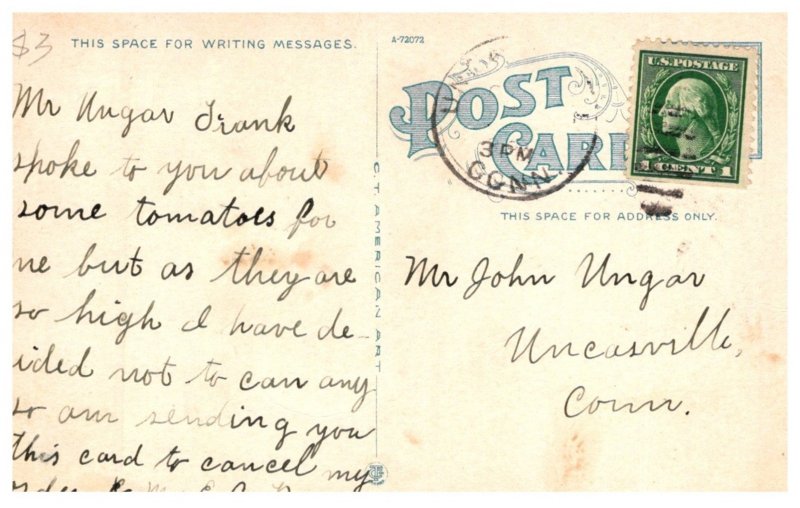 $3
THIS SPACE FOR WRITING MESSAGES.
A-72072
POST
CARD
U.S. POSTAGE
1 CENT 1
3 PM
CONN.
THIS SPACE FOR ADDRESS ONLY.
C.T. AMERICAN ART
Mr Ungar Frank
spoke to you about
some tomatoes for
me but as they are
so high I have de-
ided not to can any
so am sending you
this card to cancel my
order
Mr John Ungar
Uncasville,
Conn.